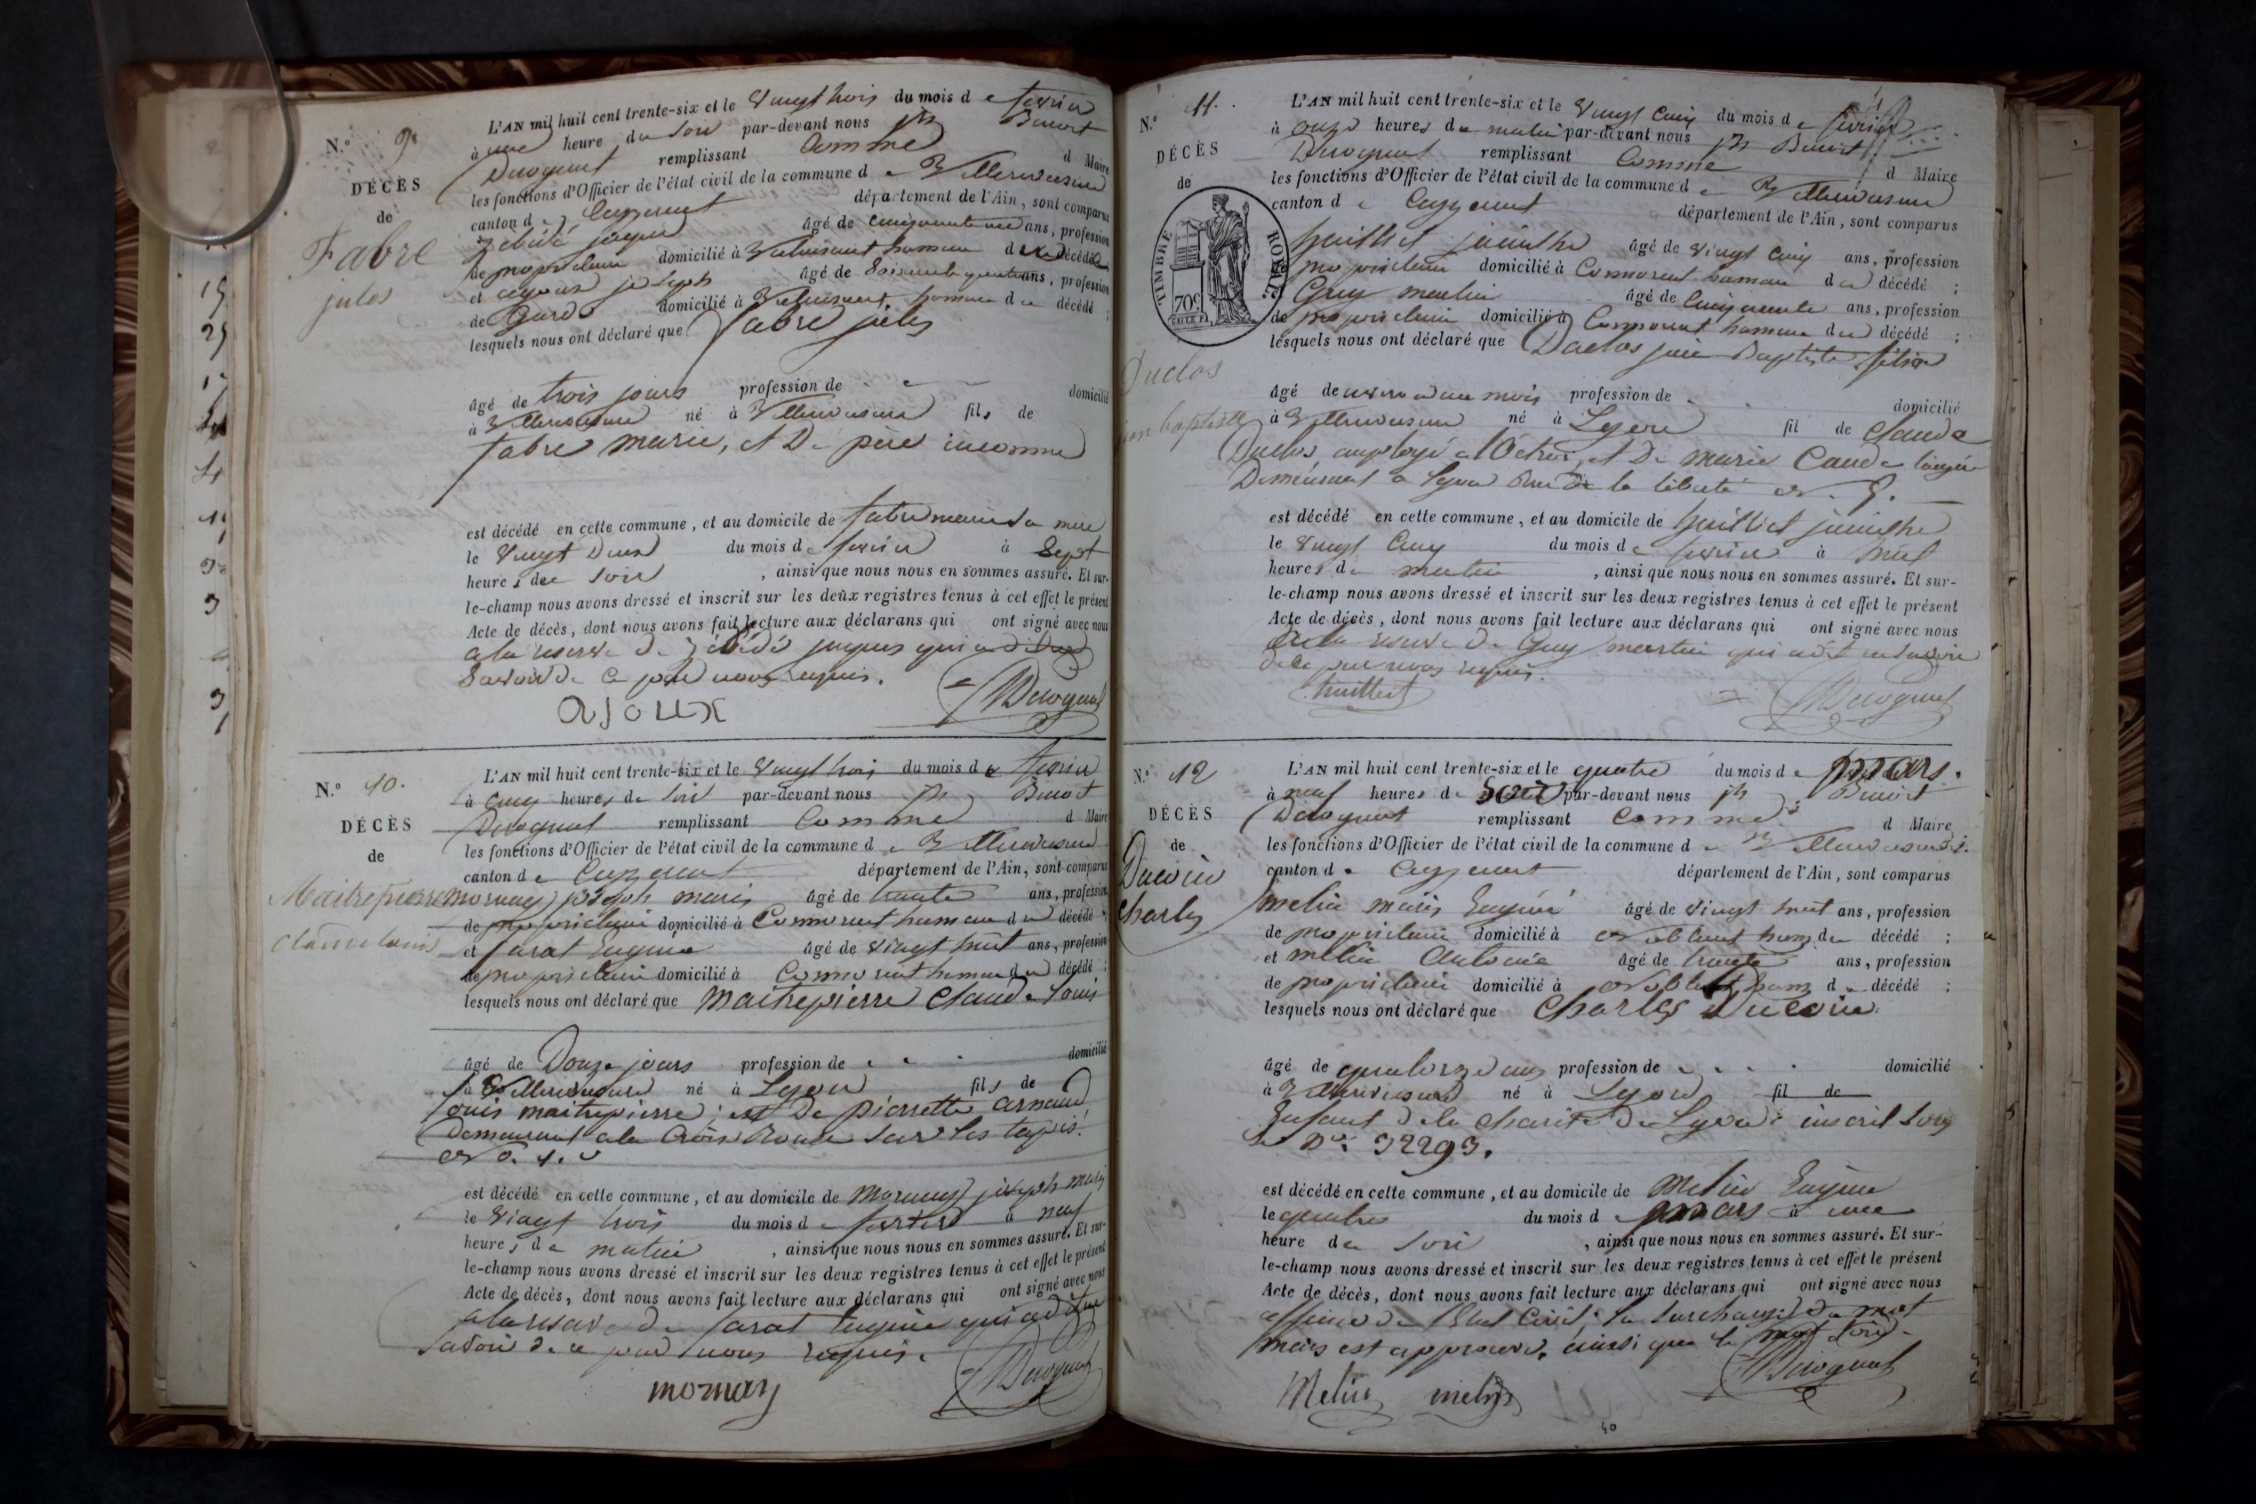 N.o 9.
DÉCÈS
de
Fabre
jules
L'AN mil huit cent trente-six et le Vingt trois du mois de fevrier
à une heure du soir par-devant nous jh Benoit
remplissant Comme d Maire
les fonctions d'Officier de l'état civil de la commune de Villereversure
canton de Ceyzeriat département de l'Ain, sont comparus
jaques âgé de cinquante ans, profession
de proprietaire domicilié à hameau du décédé
et joseph âgé de Soixante quatre ans, profession
de Garde domicilié à hameau du décédé ;
lesquels nous ont déclaré que Fabre jules
âgé de trois jours profession de domicilié
à Villereversure né à Villereversure fils de
fabre marie, et De père inconnu
est décédé en cette commune, et au domicile de fabre marie Sa mère
le Vingt Deux du mois de fevrier à Sept
heures du soir , ainsi que nous nous en sommes assuré. Et sur-
le-champ nous avons dressé et inscrit sur les deux registres tenus à cet effet le présent
Acte de décès, dont nous avons fait lecture aux déclarans qui ont signé avec nous
a la reserve de jaques qui a dit ne
Savoir de ce par nous requis.
ajoux
N.o 10.
DÉCÈS
de
Maitrepierre
claude louis
L'AN mil huit cent trente-six et le Vingt trois du mois de fevrier
à cinq heures du soir par-devant nous jh Benoit
remplissant Comme d Maire
les fonctions d'Officier de l'état civil de la commune de Villereversure
canton de Ceyzeriat département de l'Ain, sont comparus
mornay joseph marie âgé de trente ans, profession
de proprietaire domicilié à Cormorent hameau du décédé
et farat Eugene âgé de vingt huit ans, profession
de proprietaire domicilié à Cormorent hameau du décédé ;
lesquels nous ont déclaré que maitrepierre claude louis
âgé de Douze jours profession de domicilié
à Villereversure né à Lyon fils de
louis maitrepierre et de pierrette arnaud
Demeurant a la Croix Rousse Sur les tapis.
est décédé en cette commune, et au domicile de Mornay joseph marie
le Vingt trois du mois de fevrier à neuf
heures du matin , ainsi que nous nous en sommes assuré. Et sur-
le-champ nous avons dressé et inscrit sur les deux registres tenus à cet effet le présent
Acte de décès, dont nous avons fait lecture aux déclarans qui ont signé avec nous
a la reserve de farat Eugene qui a dit ne
Savoir de ce par nous requis.
mornay
N.o 11.
DÉCÈS
de
TIMBRE ROYAL
70c
Duclos
jean baptiste
L'AN mil huit cent trente-six et le Vingt Cinq du mois de fevrier
à onze heures du matin par-devant nous jh Benoit
remplissant Comme d Maire
les fonctions d'Officier de l'état civil de la commune de Villereversure
canton de Ceyzeriat département de l'Ain, sont comparus
âgé de vingt cinq ans, profession
proprietaire domicilié à Cormorent hameau du décédé ;
Guy martin âgé de Cinquante ans, profession
de proprietaire domicilié à Cormorent hameau du décédé ;
lesquels nous ont déclaré que Duclos jean Baptiste
âgé de mois profession de domicilié
à Villereversure né à Lyon fil de claude
Duclos employé a l'Octroi, et De marie Claude
Demeurant a Lyon Rue de la liberté
est décédé en cette commune, et au domicile de
le Vingt Cinq du mois de fevrier à huit
heures du matin , ainsi que nous nous en sommes assuré. Et sur-
le-champ nous avons dressé et inscrit sur les deux registres tenus à cet effet le présent
Acte de décès, dont nous avons fait lecture aux déclarans qui ont signé avec nous
a la reserve de Guy martin qui a dit ne savoir
de ce par nous requis.
N.o 12
DÉCÈS
de
Ducoin
Charles
L'AN mil huit cent trente-six et le quatre du mois de mars.
à neuf heures du Soir par-devant nous jh Benoit
remplissant Comme d Maire
les fonctions d'Officier de l'état civil de la commune de Villereversure
canton de Ceyzeriat département de l'Ain, sont comparus
marie Eugène âgé de vingt huit ans, profession
de proprietaire domicilié à ham du décédé ;
et Antoine âgé de trente ans, profession
de proprietaire domicilié à ham du décédé ;
lesquels nous ont déclaré que Charles Ducoin
âgé de quatorze ans profession de domicilié
à Villereversure né à Lyon fil de
Enfant de la charité de Lyon inscrit Sous
le No 32293.
est décédé en cette commune, et au domicile de Eugene
le quatre du mois de mars à une
heure du soir , ainsi que nous nous en sommes assuré. Et sur-
le-champ nous avons dressé et inscrit sur les deux registres tenus à cet effet le présent
Acte de décès, dont nous avons fait lecture aux déclarans qui ont signé avec nous
officier de l'Etat Civil. La Surcharge du mot
mars est approuvé, ainsi que le mot Soir.